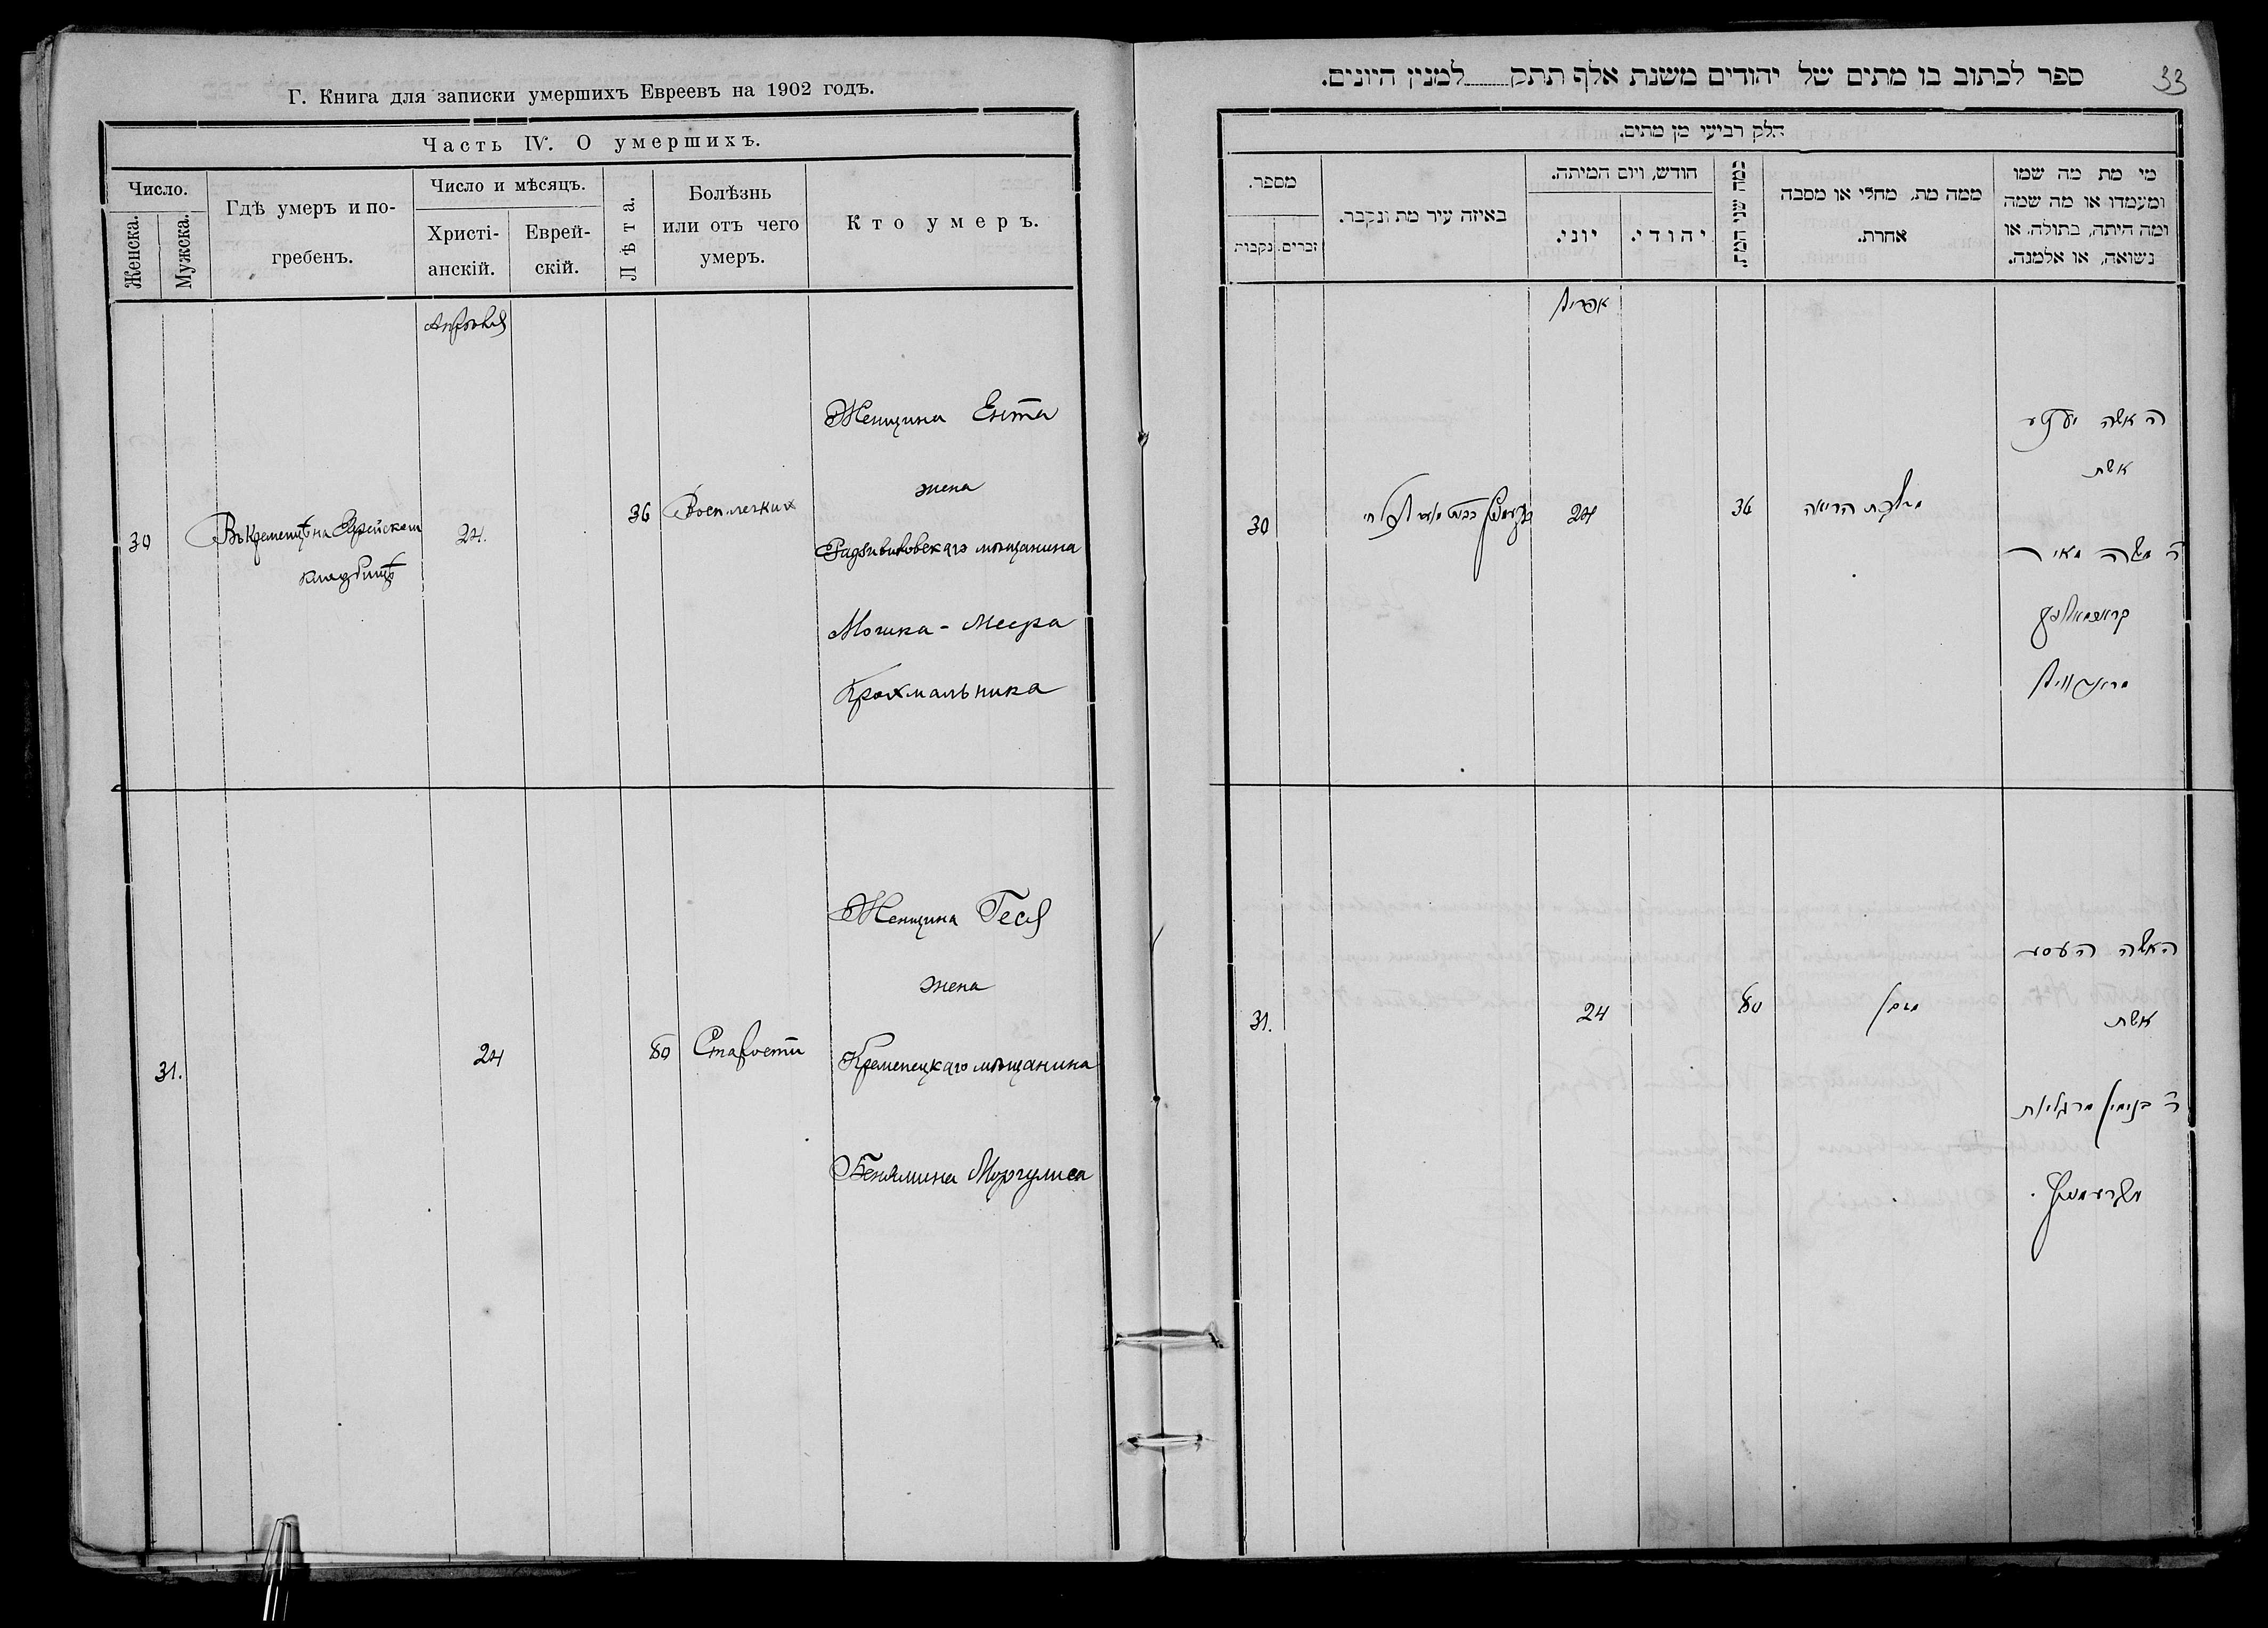 Г. Книга для записки умершихъ Евреевъ на 1902 годъ.
Часть IV. О умершихъ.
Число.
Женска.
Мужска.
Гдѣ умеръ и по-
гребенъ.
Число и мѣсяцъ.
Христі-
анскій.
Еврей-
скій.
Лѣта.
Болѣзнь
или отъ чего
умеръ.
Кто умеръ.
Апрѣля
30
Въ Кременцѣ на Еврейском
кладбищѣ
24.
36
Восп. легких
Женщина Ента
жена
Радзивиловскаго мѣщанина
Мошка-Меера
Крохмальника
31.
24
80
Старости
Женщина Геся
жена
Кременецкаго мѣщанина
Беньямина Моргулиса
33
ספר לכתוב בו מתים של יהודים משנת אלף תתק למנין היונים.
חלק רביעי מן מתים.
מספר.
נקבות
זכרים.
באיזה עיר מת ונקבר.
חודש, ויום המיתה.
יוני.
יהודי.
כמה שני המת.
ממה מת, מחלי או מסבה
אחרת.
מי מת מה שמו
ומעמדו או מה שמה
ומה היתה, בתולה, או
נשואה, או אלמנה.
אפריל
30
24
36
הריאה
האשה יענטע
אשת
ר משה מאיר
קראכמאלניק
31.
24
80
זקן
האשה העסע
אשת
ר בנימין מרגליות
מקרעמניץ.